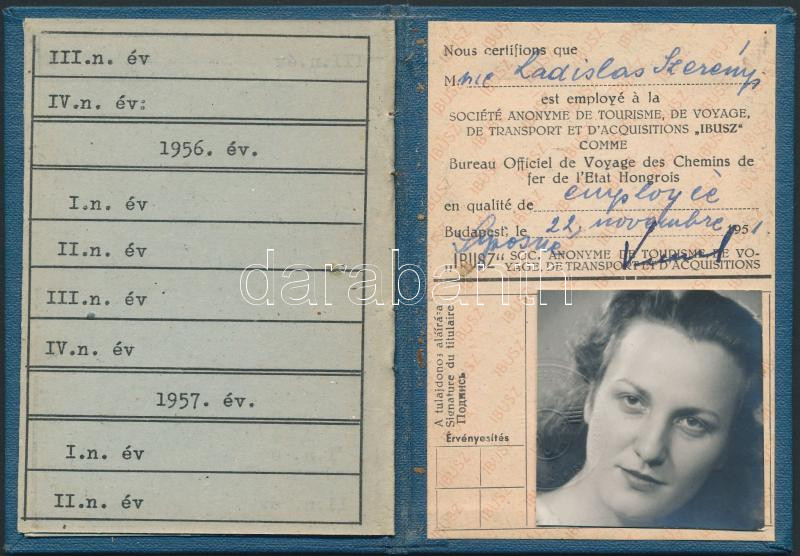 III.n. év
IV.n. év:
1956. év.
I.n. év
II.n. év
III.n. év
IV.n. év
1957. év.
I.n. év
II.n. év
Nous certifions que
Mme Ladislas Szerényi
est employé à la
SOCIÉTÉ ANONYME DE TOURISME, DE VOYAGE,
DE TRANSPORT ET D'ACQUISITIONS „IBUSZ"
COMME
Bureau Officiel de Voyage des Chemins de
fer de l'Etat Hongrois
en qualité de employée
Budapest, le 22, novembre 1951.
„IBUSZ" SOC. ANONYME DE TOURISME DE VO-
YAGE, DE TRANSPORT ET D'ACQUISITIONS
A tulajdonos aláírása
Signature du titulaire
Подпись
Érvényesítés
darabanth